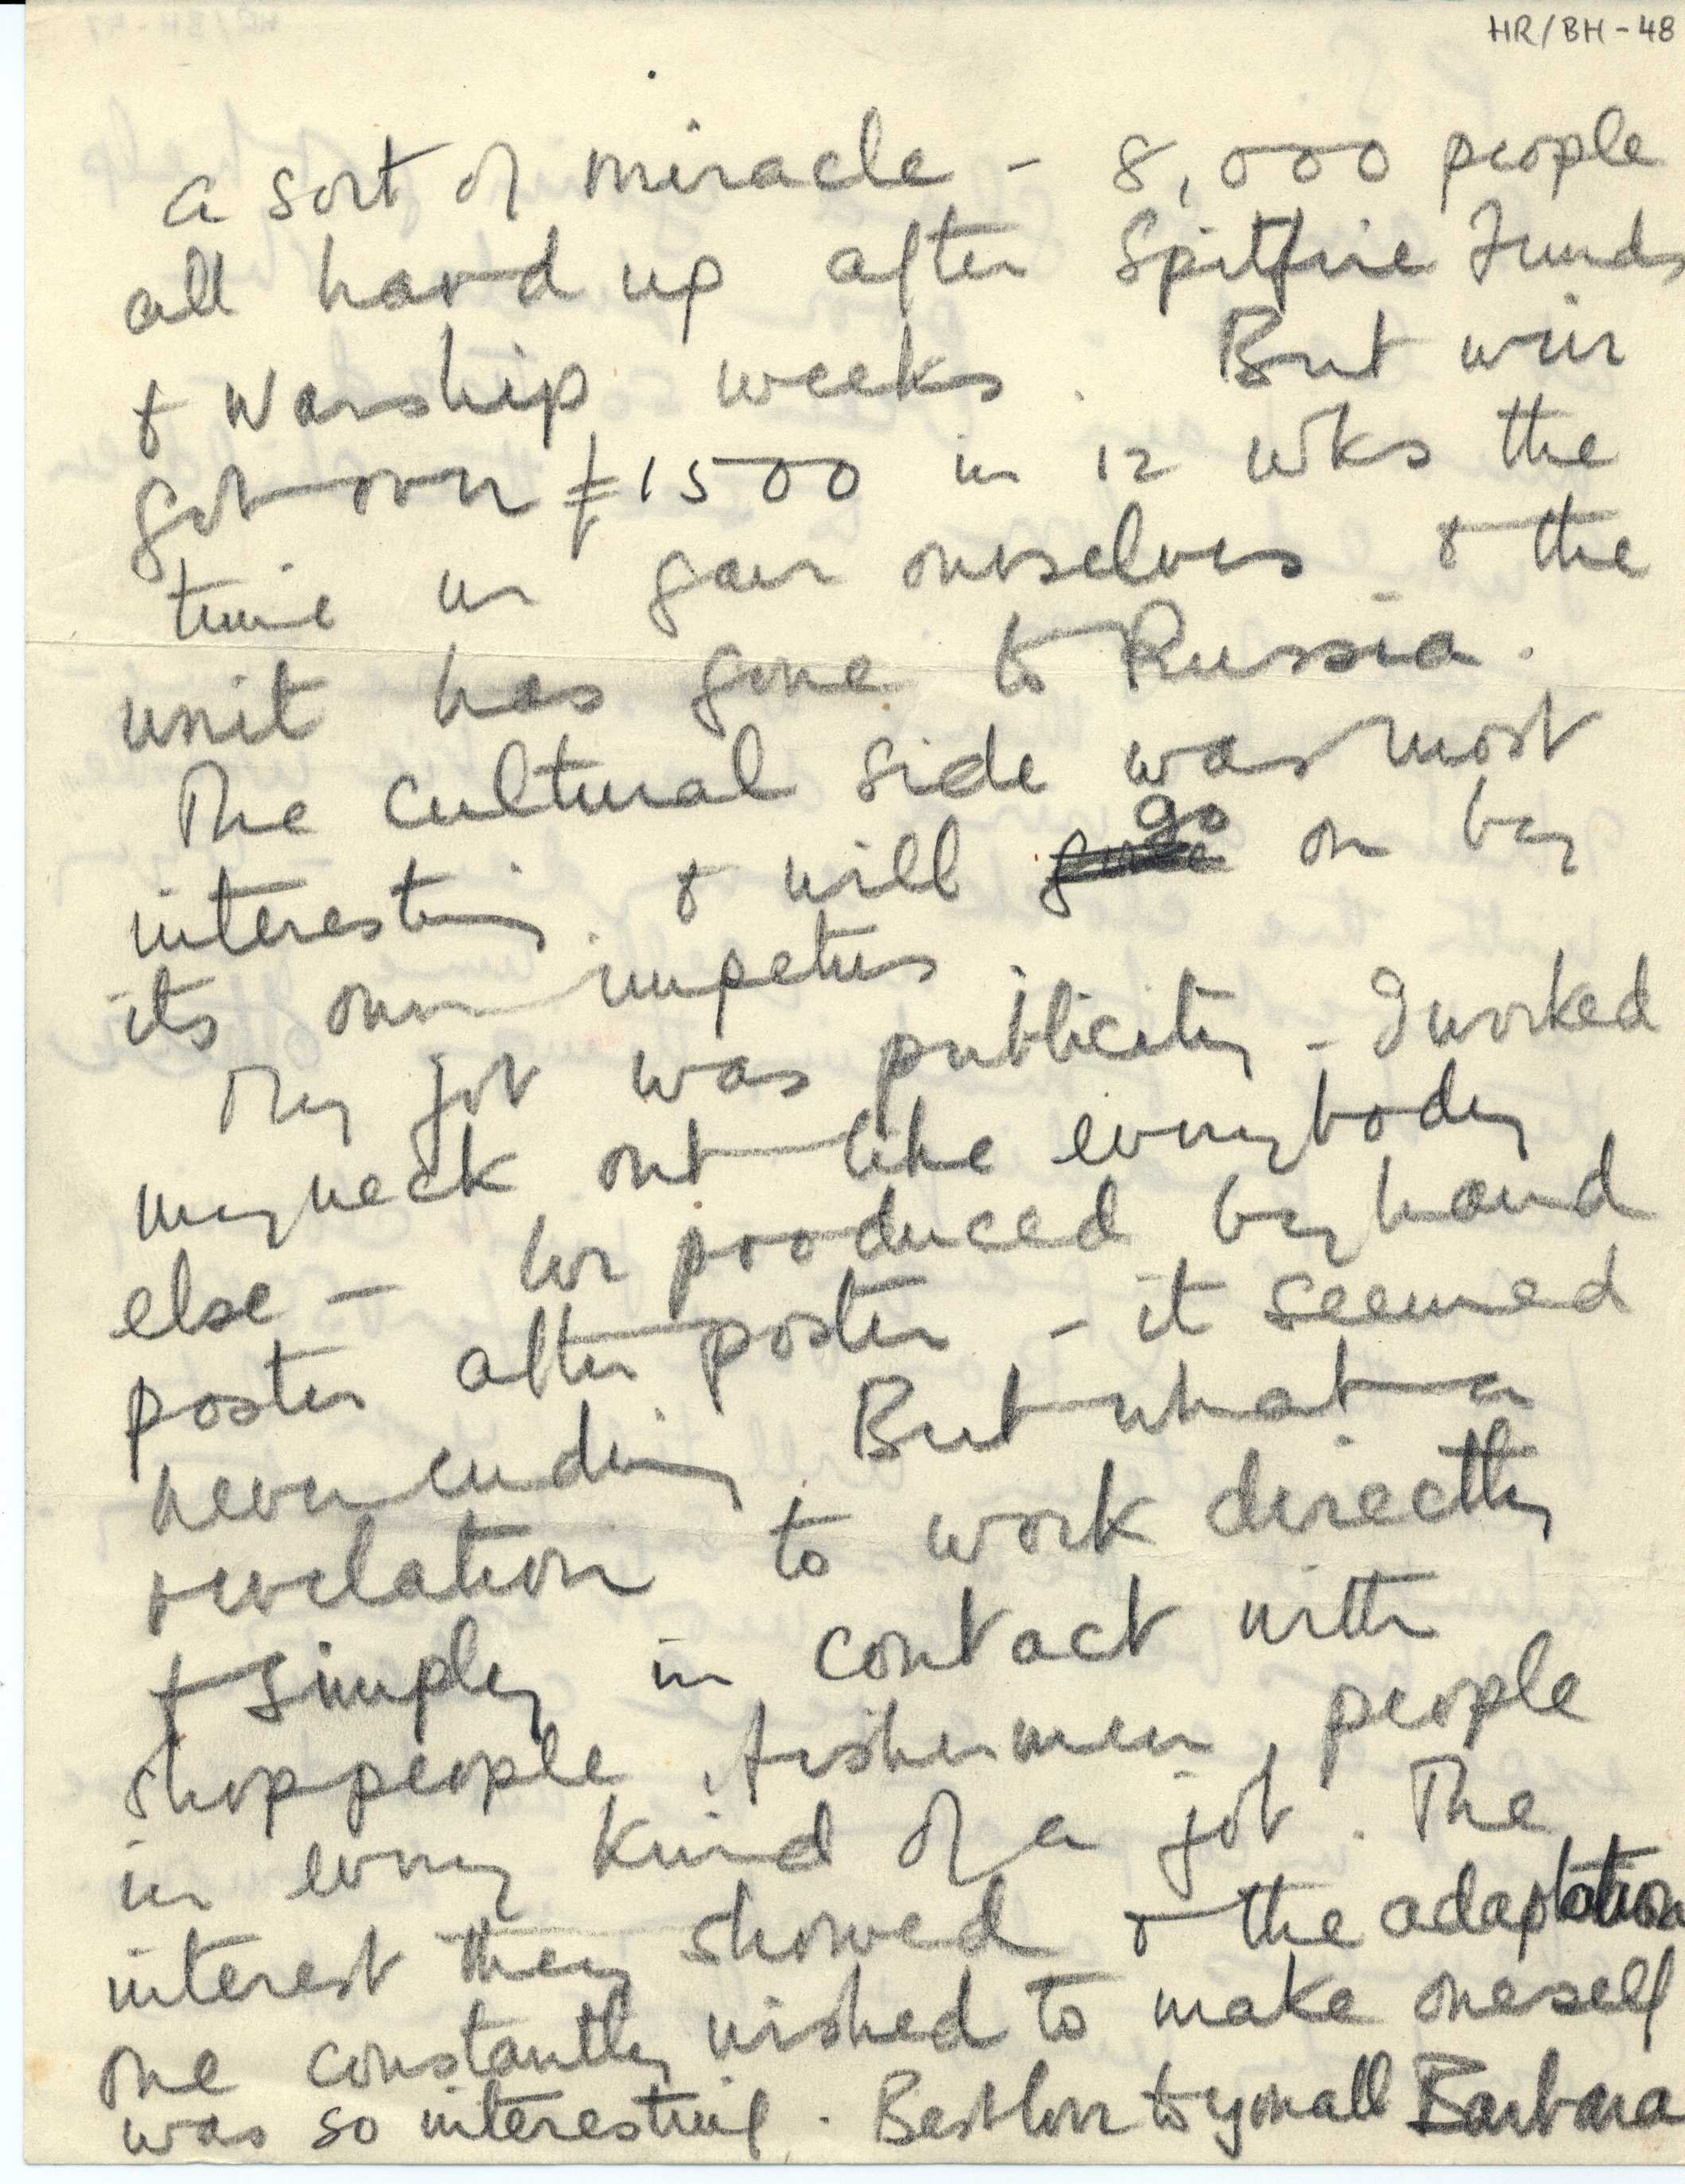 HR/BH-48
a sort of miracle - 8,000 people
all hard up after Spitfire Funds
& Warship weeks. But we've
got over £1500 in 12 wks the
time we gave ourselves & the
unit has gone to Russia.
The cultural side was most
interesting. & will go on by
its own impetus.
My job was publicity - I worked
my neck out like everybody
else - We produced by hand
poster after poster - it seemed
never ending. But what a
revelation to work directly
& simply in contact with
shoppeople, fishermen, people
in every kind of a job. The
interest they showed & the adaptation
one constantly wished to make oneself
was so interesting. Best love to you all Barbara